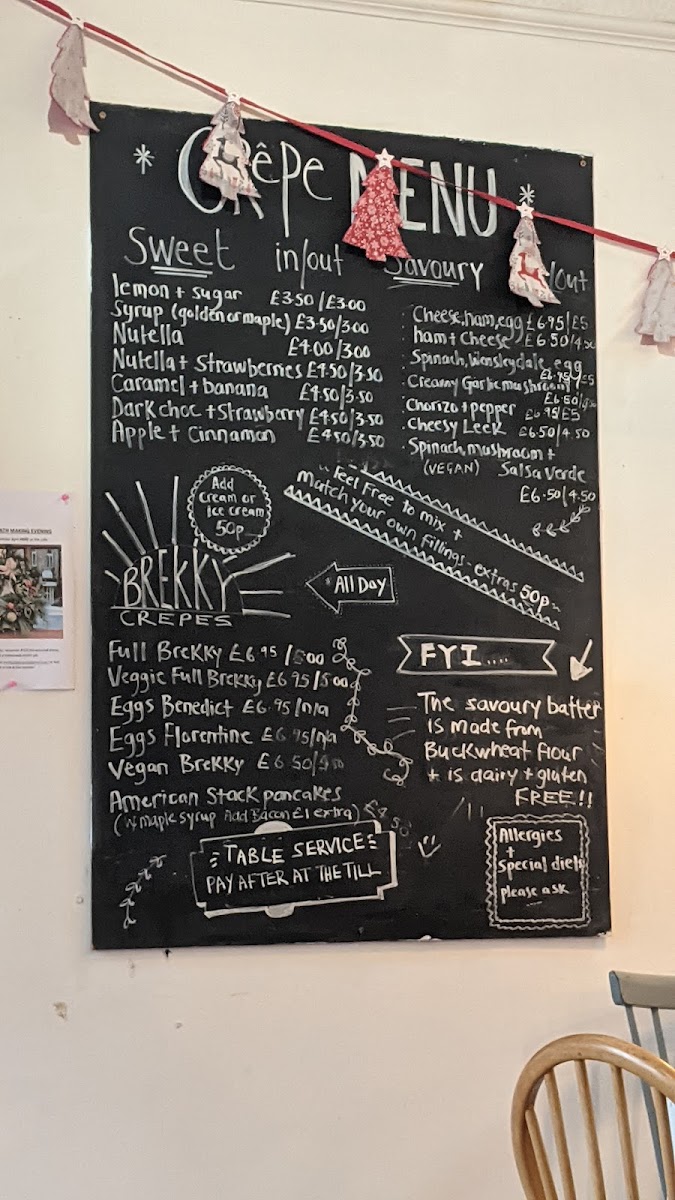 CRêPe MENU
Sweet in/out
lemon + sugar £3.50/£3.00
Syrup (golden or maple) £3.50/3.00
Nutella £4.00/3.00
Nutella + Strawberries £4.50/3.50
Caramel + banana £4.50/3.50
Dark choc + Strawberry £4.50/3.50
Apple + Cinnamon £4.50/3.50
Savoury /out
Cheese, ham, egg £6.95/£5
ham + cheese £6.50/4.50
Spinach, Wensleydale, egg
£6.95/£5
Creamy Garlic mushroom
£6.50/4.50
Chorizo + pepper £6.95/£5
Cheesy Leek £6.50/4.50
Spinach, mushroom +
(VEGAN) Salsa Verde
£6.50/4.50
Add
cream or
ice cream
50p
Feel Free to mix +
Match your own fillings - extras 50p~
BREKKY
CREPES
All Day
Full Brekky £6.95/5.00
Veggie Full Brekky £6.95/5.00
Eggs Benedict £6.95/n/a
Eggs Florentine £6.95/n/a
Vegan Brekky £6.50/
American Stack pancakes
(w maple syrup Add Bacon £1 extra) £4.50
TABLE SERVICE
PAY AFTER AT THE TILL
FYI....
The savoury batter
is made from
Buckwheat flour
+ is dairy + gluten
FREE!!
Allergies
+
Special diets
please ask
MAKING EVENING